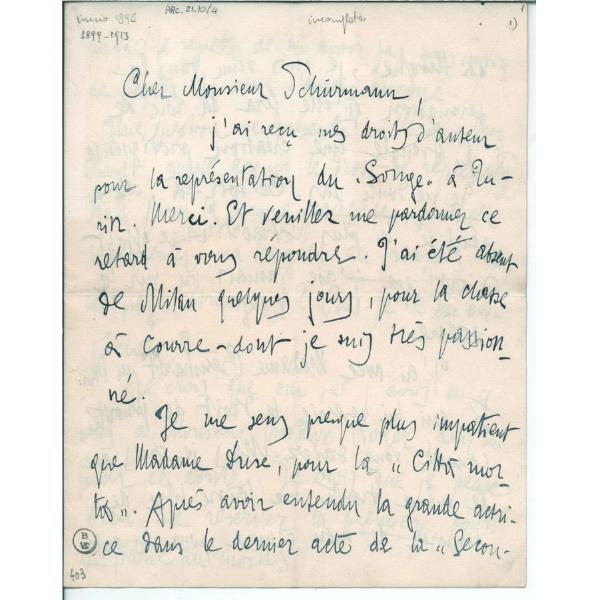 inizio 1898
ARC. 21.10/4
incompleta
1)
1899-1913
Cher Monsieur Schürmann,
j'ai reçu mes droits d'auteur
pour la représentation du „Songe" à Tu-
rin. Merci. Et veuillez me pardonner ce
retard à vous répondre. J'ai été absent
de Milan quelques jours, pour la chasse
à courre – dont je suis très passion-
né.
Je me sens presque plus impatient
que Madame Duse, pour la „Città mor-
ta". Après avoir entendu la grande actri-
ce dans le dernier acte de la „Secon-
403